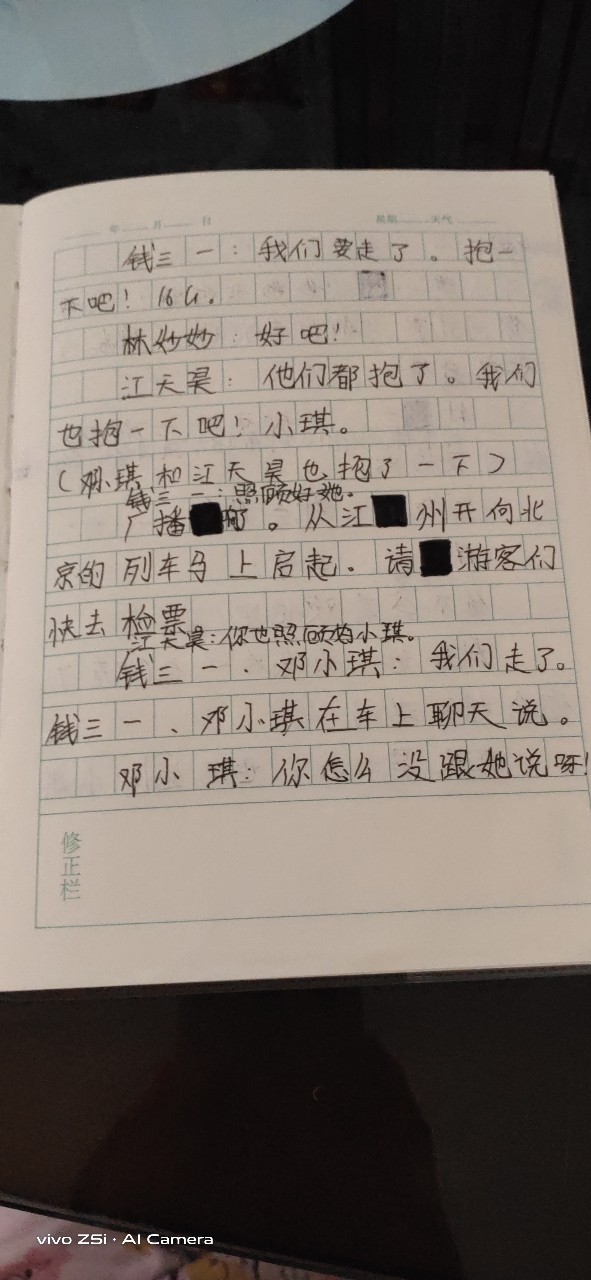 年 月 日 星期 天气
钱三一：我们要走了。抱一
下吧！
林妙妙：好吧！
江天昊：他们都抱了。我们
也抱一下吧！小琪。
（邓小琪和江天昊也抱了一下）
钱三一：照顾好她。
广播 。从江 州开向北
京的列车马上启起。请 游客们
快去检票
江天昊：你也照顾好小琪。
钱三一、邓小琪：我们走了。
钱三一、邓小琪在车上聊天说。
邓小琪：你怎么没跟她说呀！
修正栏
vivo Z5i · AI Camera